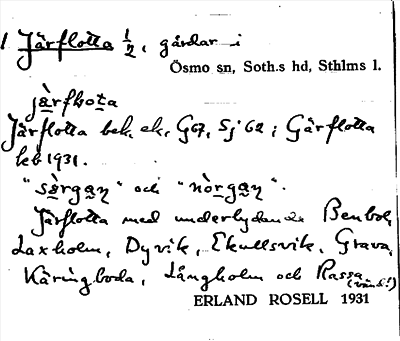 1 Järflotta 1/2, gårdar i
Ösmo sn, Soth.s hd, Sthlms l.
jàrfḷota
Järflotta bek. ek, G67, Sj 62; Gärflotta
keb 1931.
"sörgaŋ" och "nòrgaŋ".
Järflotta med underlydande Benbol,
Laxholm, Dyvik, Ekullsvik, Grava,
Käringboda, Långholm och Rassa
(vänd!)
ERLAND ROSELL 1931